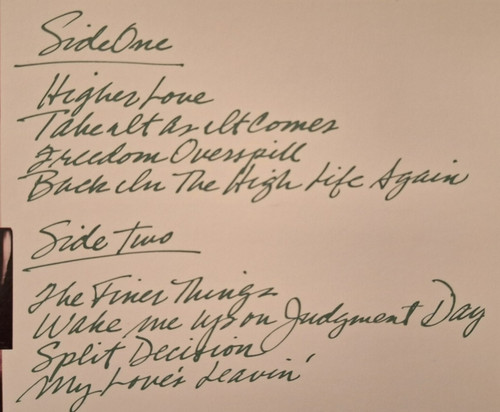 Side One
Higher Love
Take It As It Comes
Freedom Overspill
Back In The High Life Again
Side Two
The Finer Things
Wake me up on Judgment Day
Split Decision
My Love's Leavin'